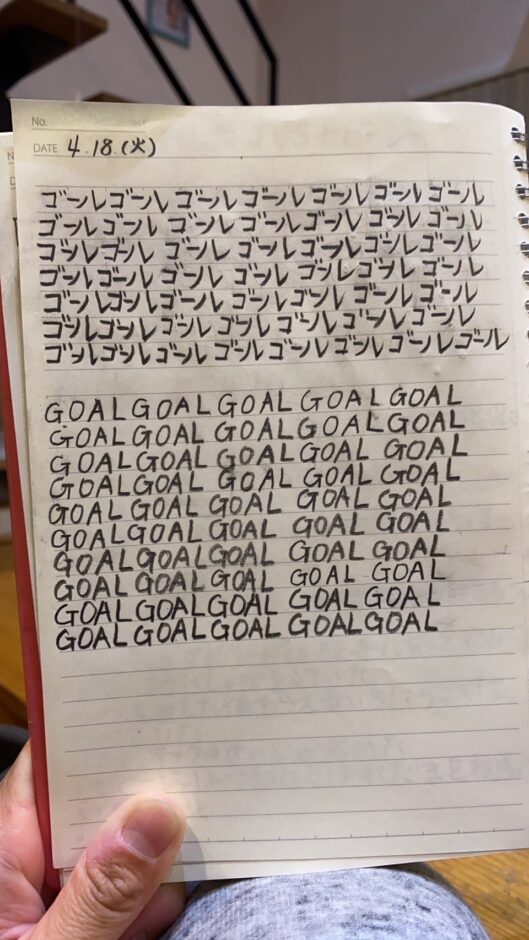 No.
DATE 4.18.(火)
ゴールゴール ゴール ゴール ゴール ゴール ゴール
ゴールゴール ゴール ゴールゴール ゴール ゴール
ゴールゴール ゴール ゴールゴール ゴールゴール
ゴールゴール ゴール ゴール ゴールゴール ゴール
ゴールゴールゴール ゴール ゴール ゴール ゴール
ゴールゴール ゴール ゴール ゴール ゴール ゴール
ゴールゴール ゴール ゴール ゴール ゴール ゴール ゴール
GOAL GOAL GOAL GOAL GOAL
GOAL GOAL GOAL GOAL GOAL
GOAL GOAL GOAL GOAL GOAL
GOAL GOAL GOAL GOAL GOAL
GOAL GOAL GOAL GOAL GOAL
GOAL GOAL GOAL GOAL GOAL
GOAL GOAL GOAL GOAL GOAL
GOAL GOAL GOAL GOAL GOAL
GOAL GOAL GOAL GOAL GOAL
GOAL GOAL GOAL GOAL GOAL